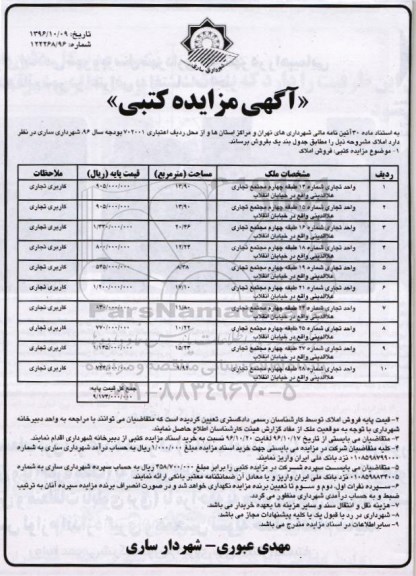 تاریخ: ۱۳۹۶/۱۰/۰۹
شماره: ۱۲۲۲۶۸/۹۶
شهرداری ساری
«آگهی مزایده کتبی»
به استناد ماده ۳۰ آئین نامه مالی شهرداری های تهران و مراکز استان ها و از محل ردیف اعتباری ۷۰۲۰۰۱ بودجه سال ۹۶ شهرداری ساری در نظر
دارد املاک مشروحه ذیل را مطابق جدول بند یک بفروش برساند.
۱- موضوع مزایده کتبی: فروش املاک
ردیف مشخصات ملک مساحت (مترمربع) قیمت پایه (ریال) ملاحظات
۱ واحد تجاری شماره ۱۳ طبقه چهارم مجتمع تجاری علاالدینی واقع در خیابان انقلاب ۱۳/۹۰ ۹۰۵/۰۰۰/۰۰۰ کاربری تجاری
۲ واحد تجاری شماره ۱۵ طبقه چهارم مجتمع تجاری علاالدینی واقع در خیابان انقلاب ۱۳/۹۰ ۹۰۵/۰۰۰/۰۰۰ کاربری تجاری
۳ واحد تجاری شماره ۱۶ طبقه چهارم مجتمع تجاری علاالدینی واقع در خیابان انقلاب ۲۰/۴۶ ۱/۳۳۰/۰۰۰/۰۰۰ کاربری تجاری
۴ واحد تجاری شماره ۱۸ طبقه چهارم مجتمع تجاری علاالدینی واقع در خیابان انقلاب ۱۲/۲۴ ۸۰۰/۰۰۰/۰۰۰ کاربری تجاری
۵ واحد تجاری شماره ۱۹ طبقه چهارم مجتمع تجاری علاالدینی واقع در خیابان انقلاب ۸/۳۸ ۵۴۵/۰۰۰/۰۰۰ کاربری تجاری
۶ واحد تجاری شماره ۲۱ طبقه چهارم مجتمع تجاری علاالدینی واقع در خیابان انقلاب ۱۷/۱۰ ۱/۲۰۰/۰۰۰/۰۰۰ کاربری تجاری
۷ واحد تجاری شماره طبقه چهارم مجتمع تجاری علاالدینی واقع در خیابان انقلاب کاربری تجاری
۸ واحد تجاری شماره ۲۵ طبقه چهارم مجتمع تجاری علاالدینی واقع در خیابان انقلاب ۱۰/۲۲ ۷۷۰/۰۰۰/۰۰۰ کاربری تجاری
۹ واحد تجاری شماره ۲۷ طبقه چهارم مجتمع تجاری علاالدینی واقع در خیابان انقلاب ۱۵/۲۳ ۱/۱۴۵/۰۰۰/۰۰۰ کاربری تجاری
۱۰ واحد تجاری شماره ۲۸ طبقه چهارم مجتمع تجاری علاالدینی واقع در خیابان انقلاب کاربری تجاری
جمع کل قیمت پایه
۹/۱۷۳/۰۰۰/۰۰۰
ParsNamad
۲- قیمت پایه فروش املاک توسط کارشناسان رسمی دادگستری تعیین گردیده است که متقاضیان می توانند با مراجعه به واحد دبیرخانه
شهرداری با توجه به موقعیت ملک از مفاد گزارش هیئت کارشناسان اطلاع حاصل نمایند.
۳- متقاضیان می بایستی از تاریخ ۹۶/۱۰/۱۷ لغایت ۹۶/۱۰/۲۰ نسبت به خرید اسناد مزایده کتبی از دبیرخانه شهرداری اقدام نمایند.
۴- کلیه متقاضیان شرکت در مزایده می بایستی جهت خرید اسناد مزایده مبلغ ۱/۰۰۰/۰۰۰ ریال به حساب درآمد شهرداری ساری به شماره
نزد بانک ملی ایران واریز نمایند.
۵- متقاضیان می بایست سپرده شرکت در مزایده کتبی را برابر مبلغ ۴۵۸/۷۰۰/۰۰۰ ریال به حساب سپرده شهرداری ساری به شماره
نزد بانک ملی ایران واریز و یا معادل آن ضمانتنامه معتبر بانکی ارائه نمایند.
۶- سپرده نفرات اول، دوم و سوم تا تعیین برنده مزایده نگهداری خواهد شد و در صورت انصراف برنده مزایده سپرده آنان به ترتیب
ضبط و به حساب درآمدی شهرداری منظور می گردد.
۷- هزینه نقل و انتقال سند و سایر هزینه ها بعهده خریدار می باشد.
۸- شهرداری در رد یا قبول یک یا کلیه پیشنهادات مجاز می باشد.
۹- سایر اطلاعات در اسناد مزایده مندرج می باشد.
مهدی عبوری - شهردار ساری